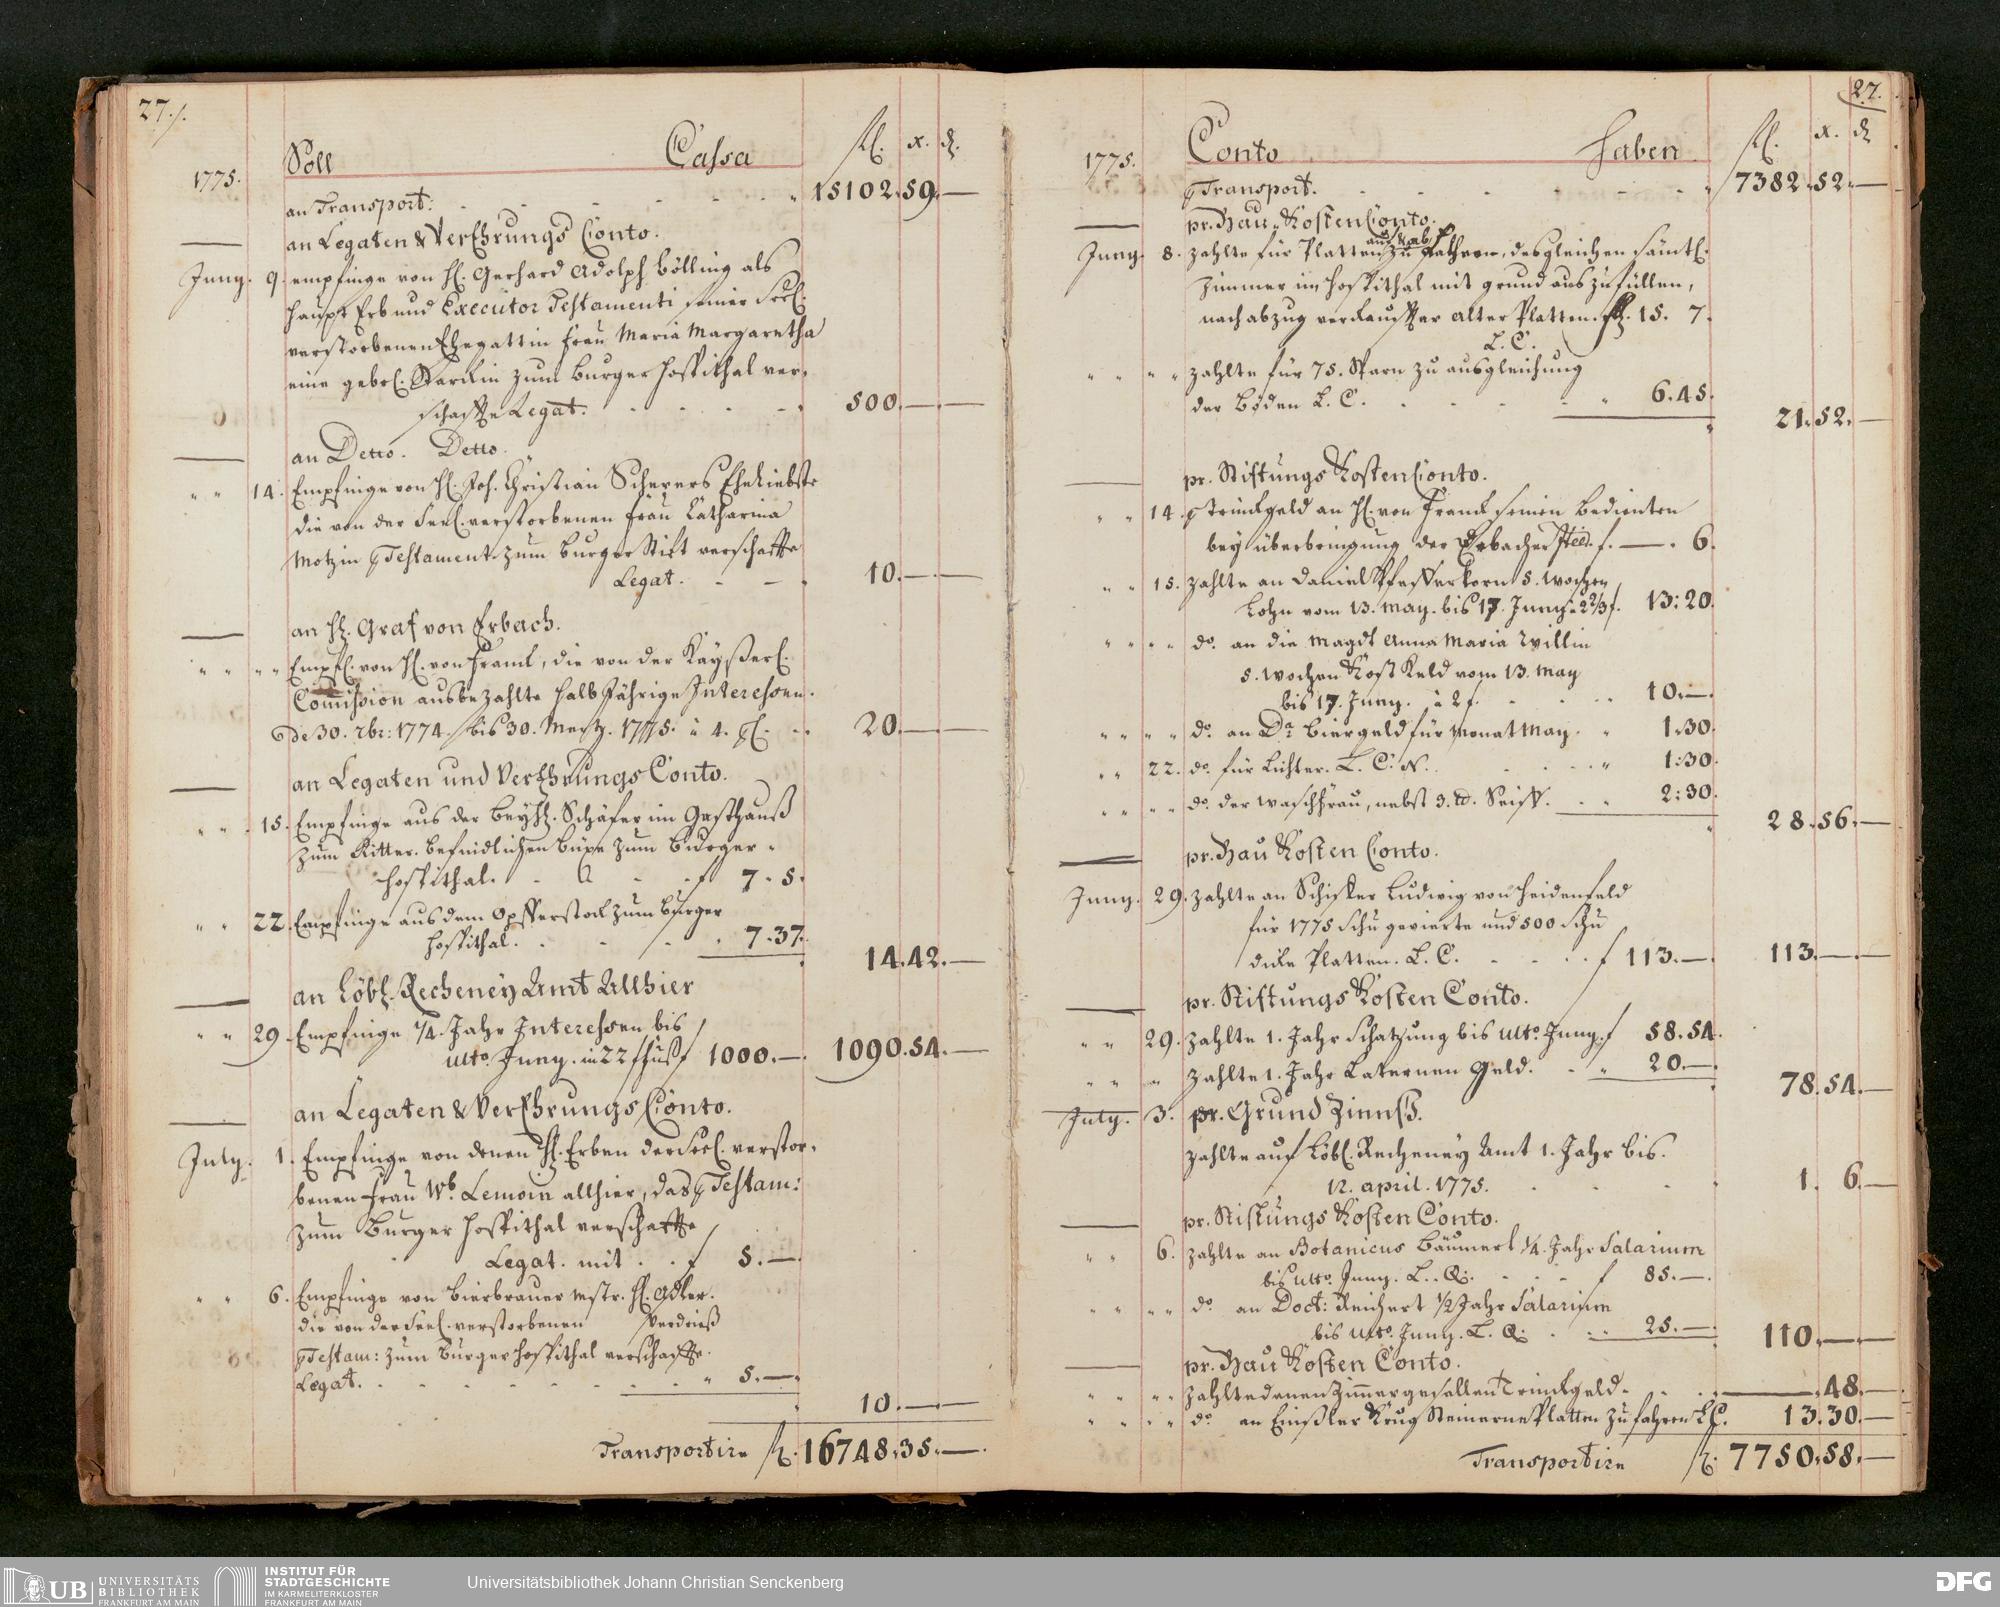 27./.
Soll Cassa fl. x. ₰.
1775.
an Transport. 15102.59.—
an Legaten & VerEhrungs Conto.
Juny. 9. empfinge von H. Gerhard Adolph Bölling als
Haupt Erb und Executor Testamenti seiner Seel.
verstorbenen Ehegattin Frau Maria Margaretha
eine gebrl. Starckin zum Burger Hospithal ver-
schaffte Legat. 500.—.—
an Detto. Detto.
" " 14. Empfinge von H. Joh. Christian Scherers Eheliebste
die von der Seel. verstorbenen Frau Catharina
Motzin Testament zum Burger Stift verschaffte
Legat. 10.—.—
an H. Graf von Erbach.
" " " " Empfl. von H. von Franck, die von der Kayßerl.
Commission ausbezahlte halb Jährige Interessen.
de 30. 7br: 1774. bis 30. Mertz. 1775. à 4. 20.—.—
an Legaten und VerEhrungs Conto.
" " 15. Empfinge aus der bey H. Schäfer im Gasthauß
zum Ritter. befindlichen büxe zum Burger-
Hospithal. f 7.5.
" " 22. Empfinge aus dem Opfferstock zum Burger
Hospithal. 7.37.
14.42.—
an Löbl. Recheney Amt Allhier
" " 29. Empfinge 1/4. Jahr Interessen bis
ulto. Juny. in 22 f fuß f 1000.—. 1090.54.—
an Legaten & VerEhrungs Conto.
July. 1. Empfinge von denen H. Erben der Seel. verstor-
benen Frau Wb. Lemoin allhier, das Testam:
zum Burger Hospithal verschaffte
Legat. mit f 5.—.
" " 6. Empfinge von Bierbrauer Mstr. H. Adler.
die von der Seel. verstorbenen
Testam: zum Burger Hospithal verschaffte.
Legat. " 5.—.
10.—.—
Transportire fl. 16748.35.—.
27.
Conto Haben fl. x. ₰
1775.
Transport. 7382.52.—
pr. Bau-Kosten Conto.
Juny. 8. zahlte für Platten zu fahren, desgleichen sämtl.
Zimmer im Hospithal mit grund auszufüllen,
nach abzug verkauffter alter Platten. fl. 15. 7.
L. C.
" " " " zahlte für 75. Sparn zu ausgleichung
der Böden L. C. " 6.45.
21.52.—
pr. Stiftungs Kosten Conto.
" " 14. Trinckgeld an H. von Franck seinen Bedienten
bey überbringung der Erbacher f. —. 6.
" " 15. zahlte an Daniel Pfefferkorn 5. Wochen
Lohn vom 13. May. bis 17. Juny à 2 2/3 f. 13:20.
" " " " do. an die Magdt Anna Maria Willin
5. Wochen Kost Geld vom 13. May
bis 17. Juny. à 2 f. 10.—.
" " " " do. an Do. Biergeld für Monat May. " 1.30.
" " 22. do. für Lichter. L. C. N. " 1:30.
" " " " do. der Waschfrau, nebst 3. lb. Seiff. " 2:30.
28.56.—
pr. Bau Kosten Conto.
Juny. 29. zahlte an Schiffer Ludwig von Heidenfeld
für 1775 Schu gevierte und 500 Schu
dicke Platten. L. C. f 113.—. 113.—.—
pr. Stiftungs Kosten Conto.
" " 29. zahlte 1. Jahr Schatzung bis ulto. Juny. f 58.54.
" " " zahlte 1. Jahr Laternen Geld. " 20.—.
78.54.—
July. 3. pr. Grund Zinnß.
zahlte auf Löbl. Recheney Amt 1. Jahr bis.
12. april. 1775. 1. 6.—
pr. Stiftungs Kosten Conto.
" " 6. zahlte an Botanicus Bäumert 1/4. Jahr Salarium
bis ulto. Juny. L. Q. f 85.—.
" " " " do. an Doct: Reichert 1/2 Jahr Salarium
bis ulto. Juny. L. Q. " 25.—.
110.—.—
pr. Bau Kosten Conto.
" " " " zahlte denen Zimmergesellen Trinckgeld. —.48.—
" " " " do. an Krug Steinerne Platten zu fahren L. C. 13.30.—
Transportire fl. 7750.58.—
UB UNIVERSITÄTS
BIBLIOTHEK
FRANKFURT AM MAIN
INSTITUT FÜR
STADTGESCHICHTE
IM KARMELITERKLOSTER
FRANKFURT AM MAIN
Universitätsbibliothek Johann Christian Senckenberg
DFG